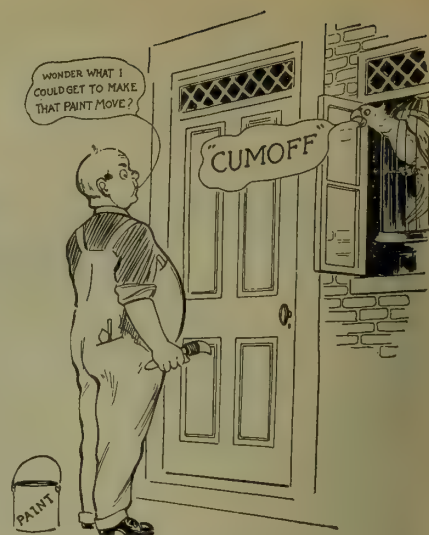 WONDER WHAT I
COULD GET TO MAKE
THAT PAINT MOVE?
"CUMOFF"
PAINT